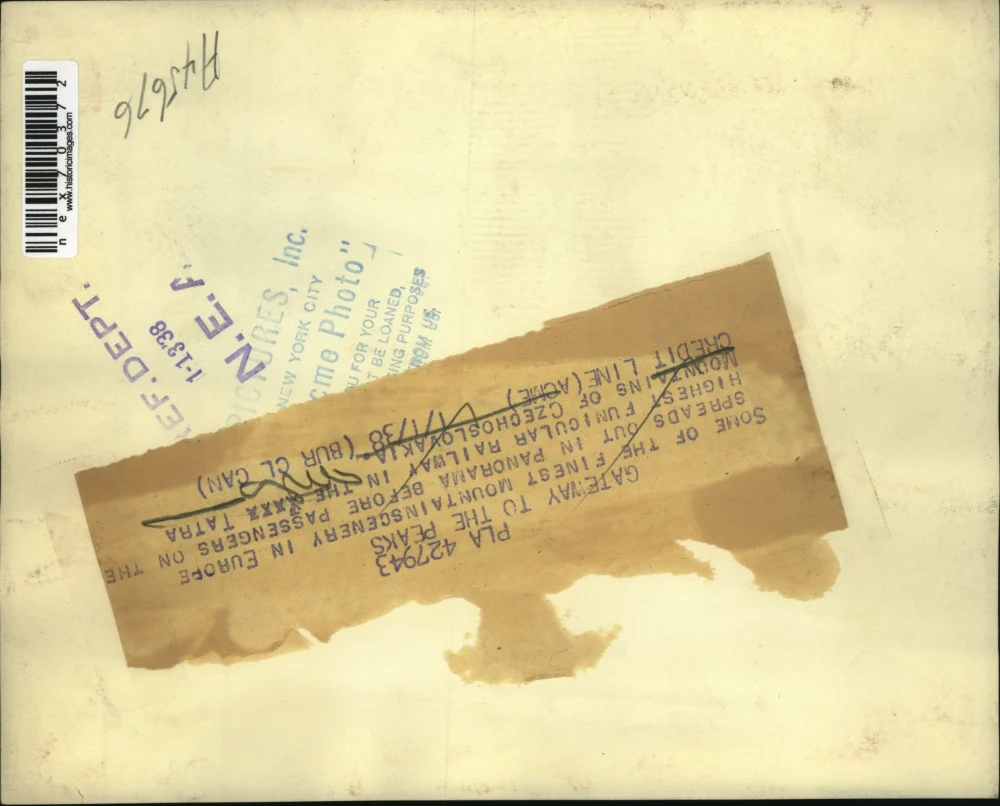 A45676
nex7037 2
www.historicimages.com
REF. DEPT.
1-13'38
N. E. A.
PICTURES, Inc.
NEW YORK CITY
cme Photo"
U FOR YOUR
T BE LOANED,
ING PURPOSES
ROM US.
PLA 427943
GATEWAY TO THE PEAKS
SOME OF THE FINEST MOUNTAINSCENERY IN EUROPE
SPREADS OUT IN PANORAMA BEFORE PASSENGERS ON THE
HIGHEST FUNICULAR RAILWAY IN THE XXXX TATRA
MOUNTAINS OF CZECHOSLOVAKIA
CREDIT LINE (ACME) 1/1/38 (BUR CL CAN)